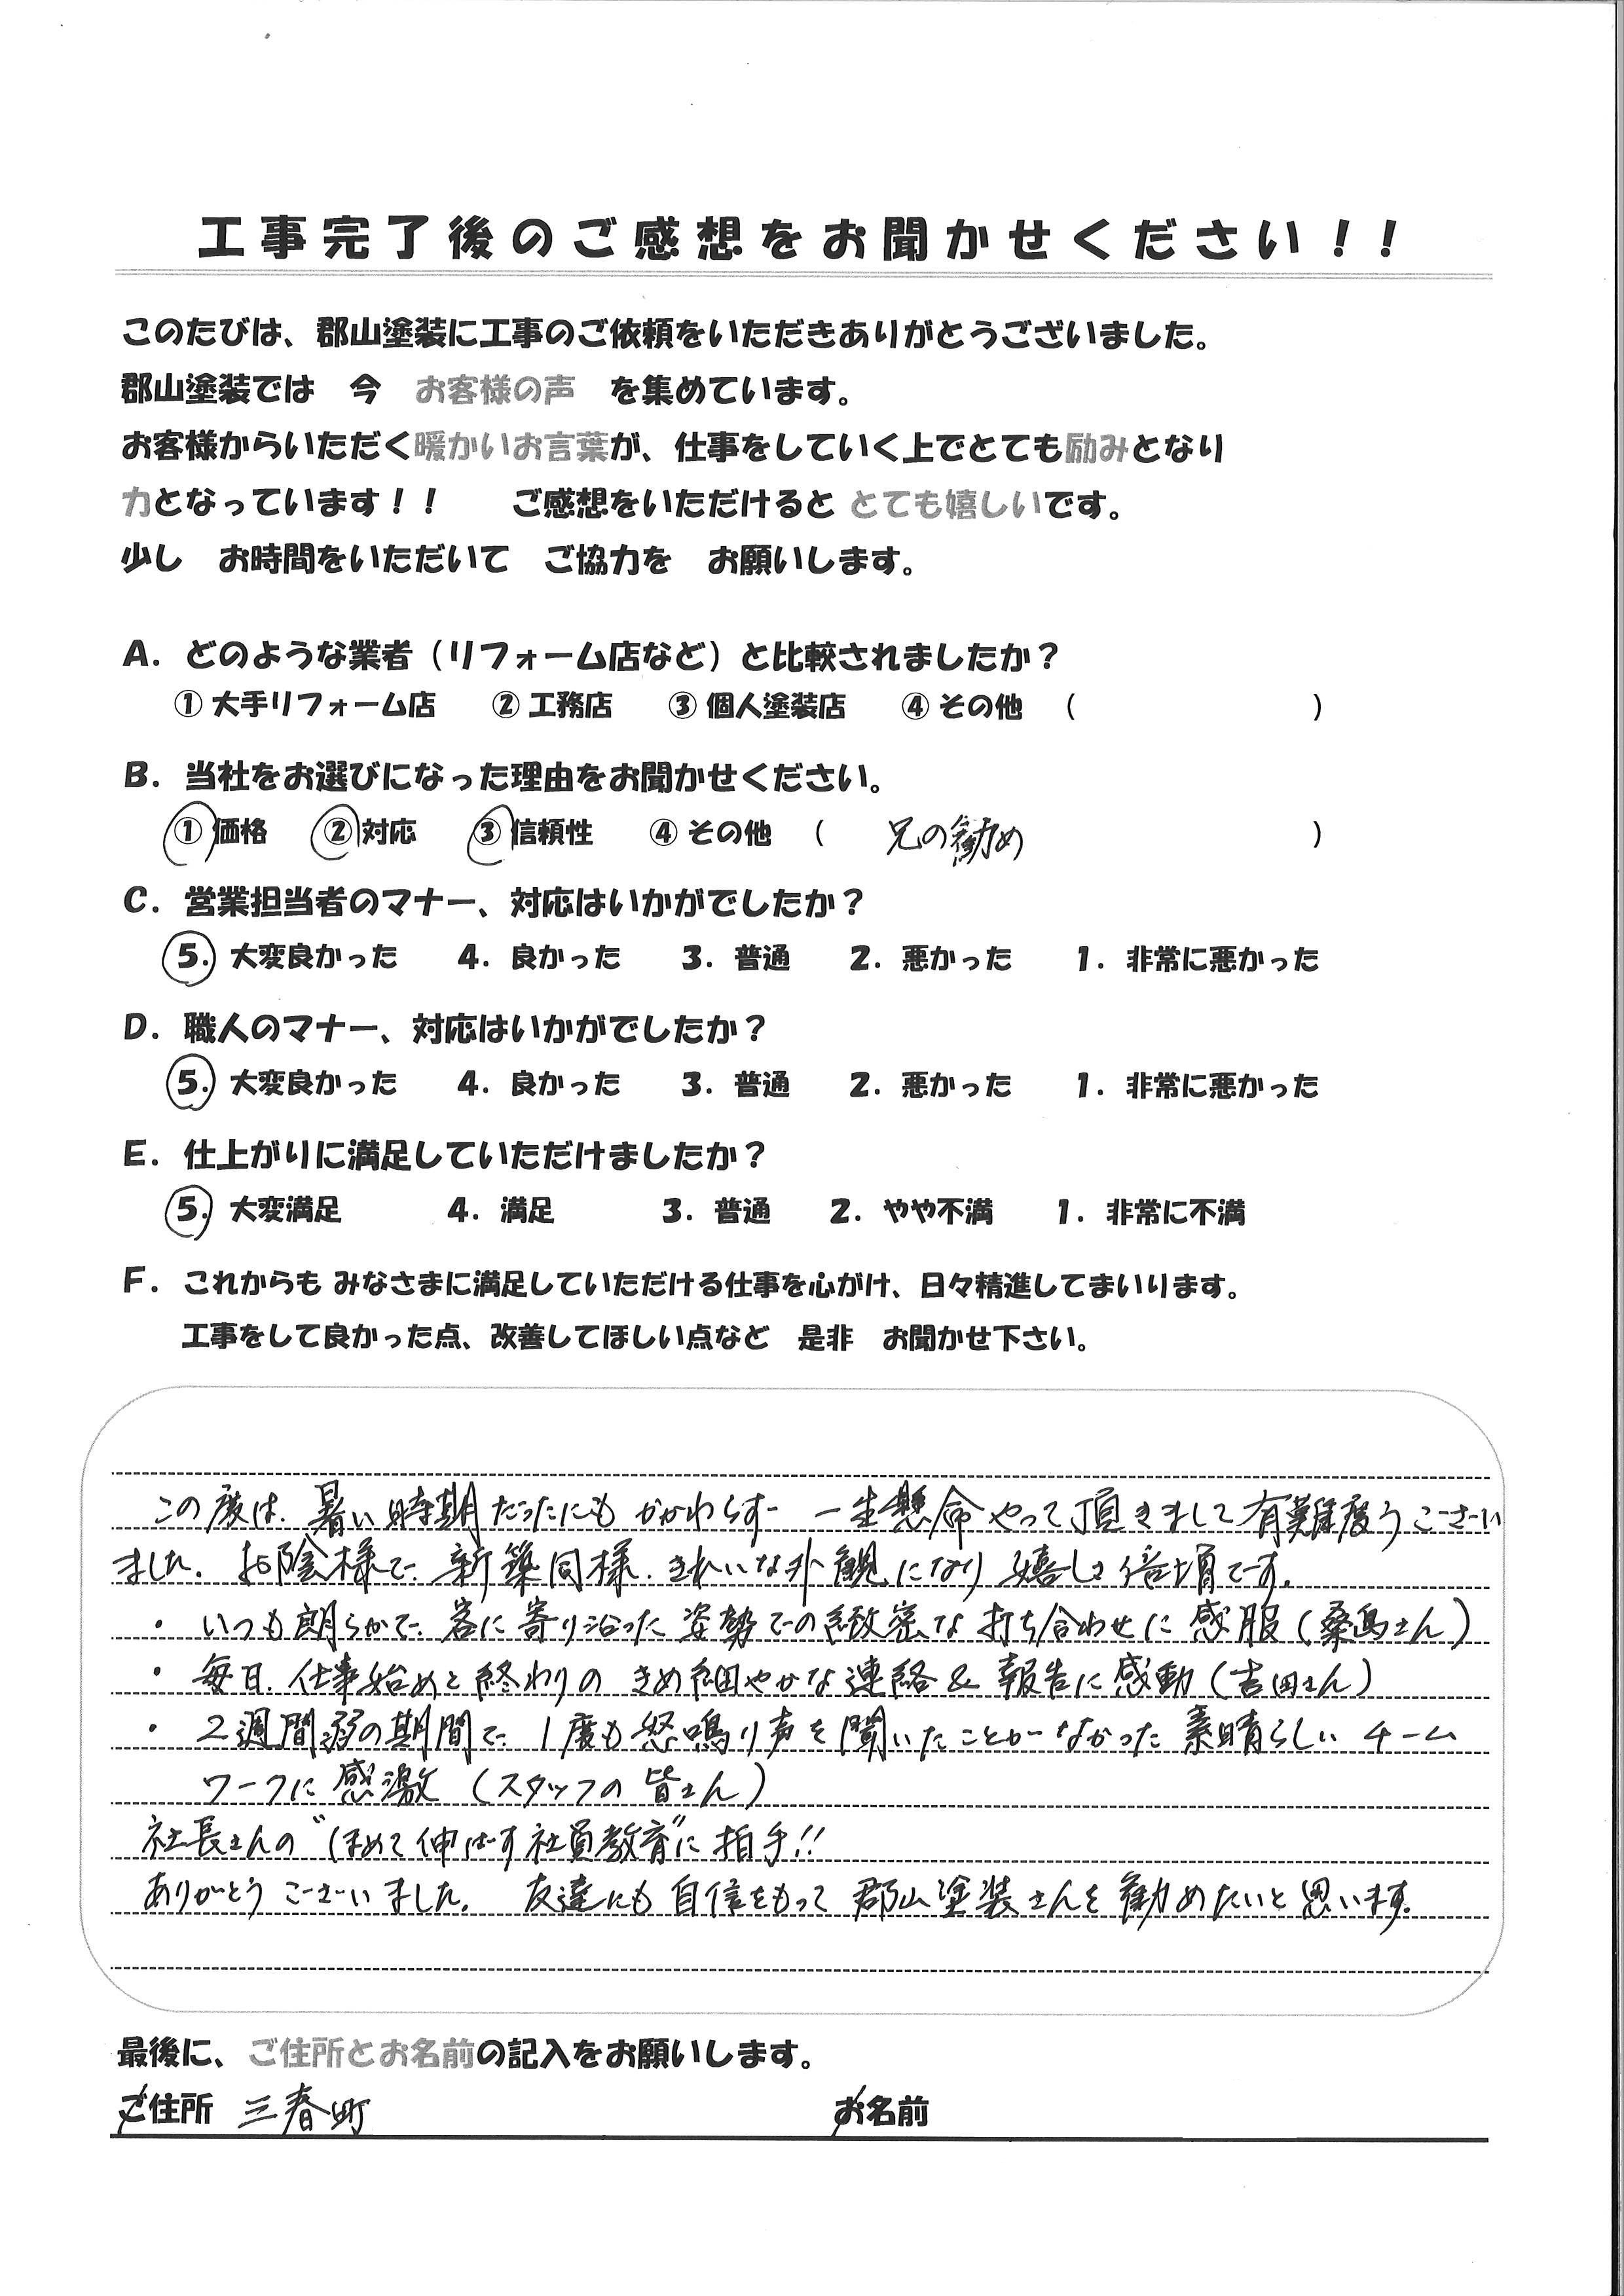 工事完了後のご感想をお聞かせください！！
このたびは、郡山塗装に工事のご依頼をいただきありがとうございました。
郡山塗装では　今　お客様の声　を集めています。
お客様からいただく暖かいお言葉が、仕事をしていく上でとても励みとなり
力となっています！！　　ご感想をいただけると とても嬉しいです。
少し　お時間をいただいて　ご協力を　お願いします。
A．どのような業者（リフォーム店など）と比較されましたか？
① 大手リフォーム店　② 工務店　③ 個人塗装店　④ その他　（　　　　　　　　）
B．当社をお選びになった理由をお聞かせください。
① 価格　② 対応　③ 信頼性　④ その他　（　兄の勧め　　　　　　）
C．営業担当者のマナー、対応はいかがでしたか？
5．大変良かった　4．良かった　3．普通　2．悪かった　1．非常に悪かった
D．職人のマナー、対応はいかがでしたか？
5．大変良かった　4．良かった　3．普通　2．悪かった　1．非常に悪かった
E．仕上がりに満足していただけましたか？
5．大変満足　4．満足　3．普通　2．やや不満　1．非常に不満
F．これからも みなさまに満足していただける仕事を心がけ、日々精進してまいります。
工事をして良かった点、改善してほしい点など　是非　お聞かせ下さい。
この度は、暑い時期だったにもかかわらず 一生懸命やって頂きまして有難度うござい
ました。お陰様で、新築同様、きれいな外観になり 嬉しさ倍増です。
・いつも朗らかで、客に寄り沿った姿勢での緻密な打ち合わせに感服（桑島さん）
・毎日、仕事始めと終わりの きめ細やかな連絡＆報告に感動（吉田さん）
・2週間弱の期間で、1度も怒鳴り声を聞いたことがなかった素晴らしいチーム
ワークに感激（スタッフの皆さん）
社長さんの“ほめて伸ばす社員教育”に拍手!!
ありがとうございました。 友達にも自信をもって郡山塗装さんを勧めたいと思います。
最後に、ご住所とお名前の記入をお願いします。
ご住所　三春町　　お名前